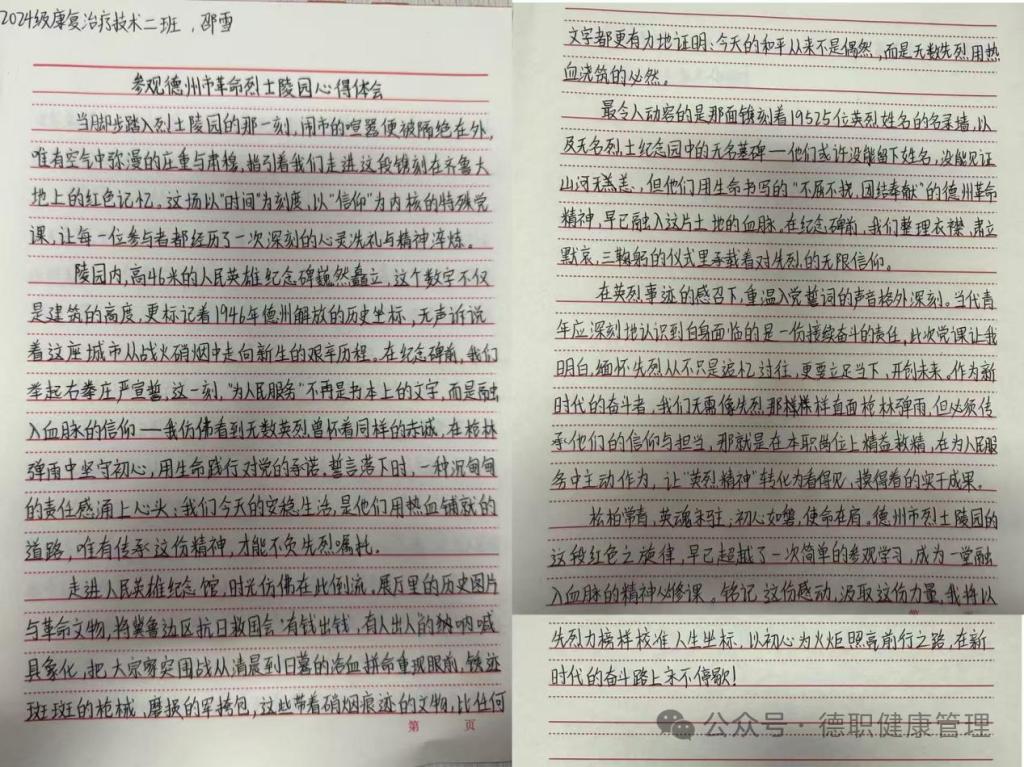 2024级康复治疗技术二班，邵雪
参观德州市革命烈士陵园心得体会
当脚步踏入烈士陵园的那一刻，闹市的喧嚣便被隔绝在外，
唯有空气中弥漫的庄重与肃穆，指引着我们走进这段镌刻在齐鲁大
地上的红色记忆。这场以“时间”为刻度，以“信仰”为内核的特殊党
课，让每一位参与者都经历了一次深刻的心灵洗礼与精神淬炼。
陵园内，高46米的人民英雄纪念碑巍然矗立，这个数字不仅
是建筑的高度，更标记着1946年德州解放的历史坐标，无声诉说
着这座城市从战火硝烟中走向新生的艰辛历程。在纪念碑前，我们
举起右拳庄严宣誓，这一刻，“为人民服务”不再是书本上的文字，而是融
入血脉的信仰——我仿佛看到无数英烈曾怀着同样的赤诚，在枪林
弹雨中坚守初心，用生命践行对党的承诺。誓言落下时，一种沉甸甸
的责任感涌上心头：我们今天的安稳生活，是他们用热血铺就的
道路，唯有传承这份精神，才能不负先烈嘱托。
走进人民英雄纪念馆，时光仿佛在此倒流。展厅里的历史图片
与革命文物，将冀鲁边区抗日救国会“有钱出钱，有人出人的呐喊
具象化，把大宗家突围战从清晨到日暮的浴血拼命重现眼前，铁迹
斑斑的枪械，磨损的军挎包，这些带着硝烟痕迹的文物，比任何
第 页
文字都更有力地证明：今天的和平从来不是偶然，而是无数先烈用热
血浇筑的必然。
最令人动容的是那面镌刻着19525位英烈姓名的名录墙，以
及无名烈士纪念园中的无名墓碑——他们或许没能留下姓名，没能见证
山河无恙，但他们用生命书写的“不屈不挠，团结奉献”的德州革命
精神，早已融入这片土地的血脉。在纪念碑前，我们整理衣襟，肃立
默哀，三鞠躬的仪式里承载着对先烈的无限信仰。
在英烈事迹的感召下，重温入党誓词的声音格外深刻。当代青
年应深刻地认识到自身面临的是一份接续奋斗的责任，此次党课让我
明白，缅怀先烈从不只是追忆过往，更要立足当下，开创未来。作为新
时代的奋斗者，我们无需像先烈那样直面枪林弹雨，但必须传
承他们的信仰与担当，那就是在本职岗位上精益求精，在为人民服
务中主动作为，让“英烈精神”转化为看得见，摸得着的实干成果。
松柏常青，英魂永驻；初心如磐，使命在肩。德州市烈士陵园的
这段红色之旋律，早已超越了一次简单的参观学习，成为一堂融
入血脉的精神必修课。铭记这份感动，汲取这份力量，我将以
先烈为榜样校准人生坐标，以初心为火炬照亮前行之路，在新
时代的奋斗路上永不停歇！
公众号·德职健康管理